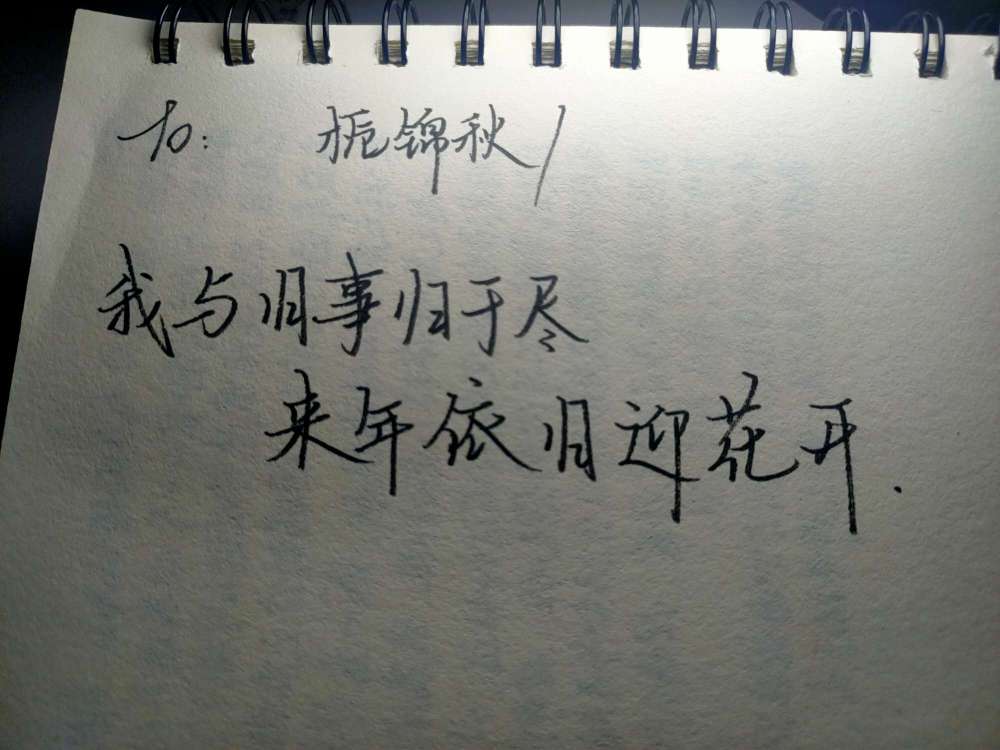 To: 栀锦秋/
我与旧事归于尽
来年依旧迎花开.